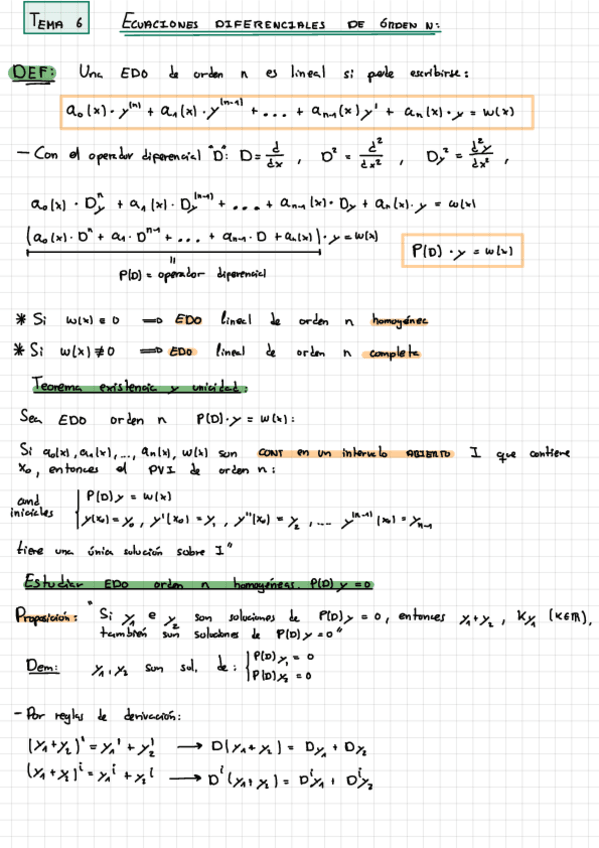 TEMA 6 ECUACIONES DIFERENCIALES DE ÓRDEN N:
DEF: Una EDO de orden n es lineal si puede escribirse:
a₀(x)·y⁽ⁿ⁾ + a₁(x)·y⁽ⁿ⁻¹⁾ + ... + aₙ₋₁(x)y' + aₙ(x)·y = w(x)
- Con el operador diferencial "D": D = d/dx , D² = d²/dx² , Dy² = d²y/dx² ,
a₀(x)·Dyⁿ + a₁(x)·Dy⁽ⁿ⁻¹⁾ + ... + aₙ₋₁(x)·Dy + aₙ(x)·y = w(x)
(a₀(x)·Dⁿ + a₁·Dⁿ⁻¹ + ... + aₙ₋₁·D + aₙ(x))·y = w(x)
P(D)·y = w(x)
=
P(D) = operador diferencial
* Si w(x) ≡ 0 => EDO lineal de orden n homogénea
* Si w(x) ≢ 0 => EDO lineal de orden n completa
Teorema existencia y unicidad:
Sea EDO orden n P(D)·y = w(x):
Si a₀(x), a₁(x), ..., aₙ(x), w(x) son CONT en un intervalo ABIERTO I que contiene
x₀, entonces el PVI de orden n:
cond iniciales
P(D)y = w(x)
y(x₀) = y₀, y'(x₀) = y₁, y''(x₀) = y₂, .... y⁽ⁿ⁻¹⁾(x₀) = yₙ₋₁
tiene una única solución sobre I"
Estudiar EDO orden n homogéneas. P(D)y = 0
Proposición: "Si y₁ e y₂ son soluciones de P(D)y = 0, entonces y₁+y₂, Ky₁ (K∈ℝ),
también sun soluciones de P(D)y = 0"
Dem: y₁, y₂ sun sol. de: P(D)y₁ = 0
P(D)y₂ = 0
- Por reglas de derivación:
(y₁+y₂)' = y₁' + y₂' → D(y₁+y₂) = Dy₁ + Dy₂
(y₁+y₂)ⁱ = y₁ⁱ + y₂ⁱ → Dⁱ(y₁+y₂) = Dⁱy₁ + Dⁱy₂